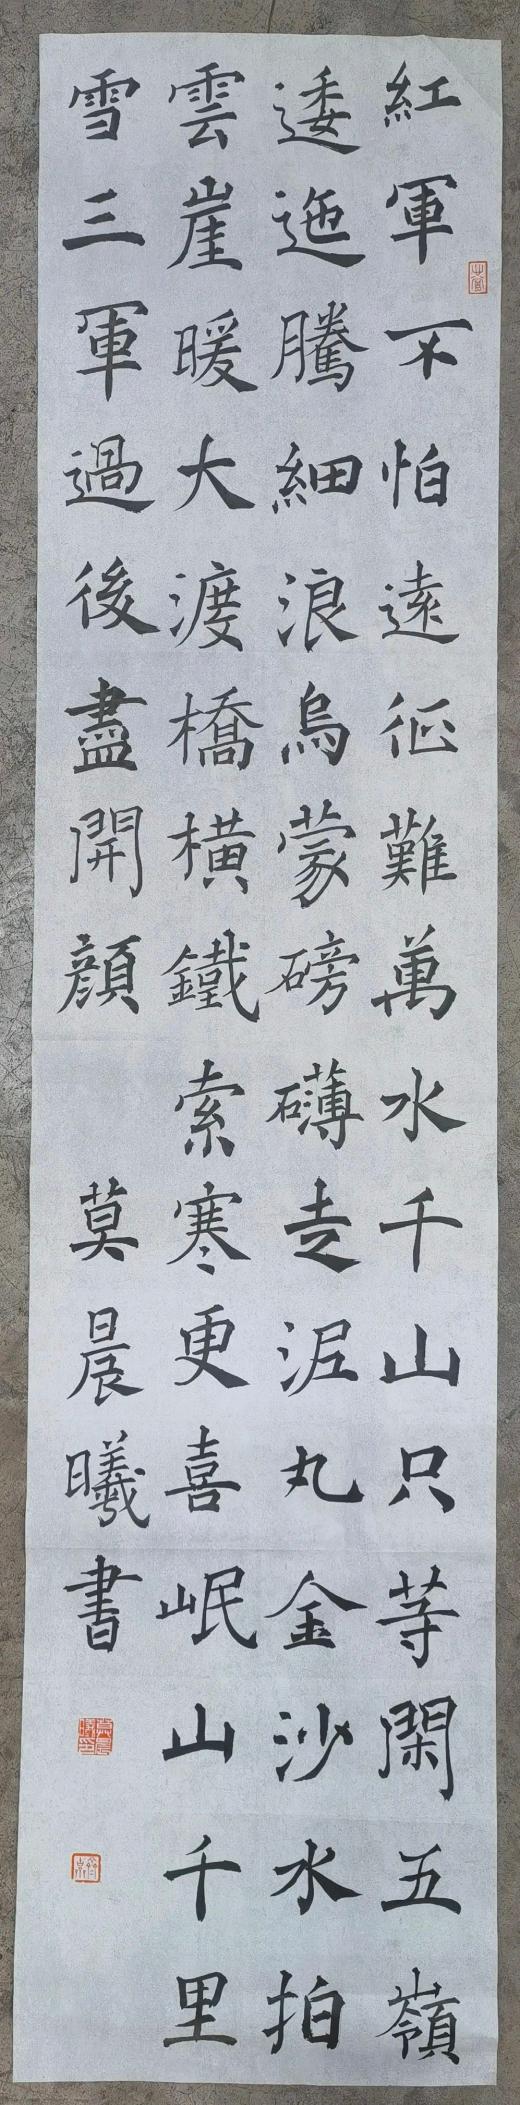 紅軍不怕遠征難萬水千山只等閑五嶺
逶迤騰細浪烏蒙磅礴走泥丸金沙水拍
雲崖暖大渡橋橫鐵索寒更喜岷山千里
雪三軍過後盡開顏
莫晨曦書